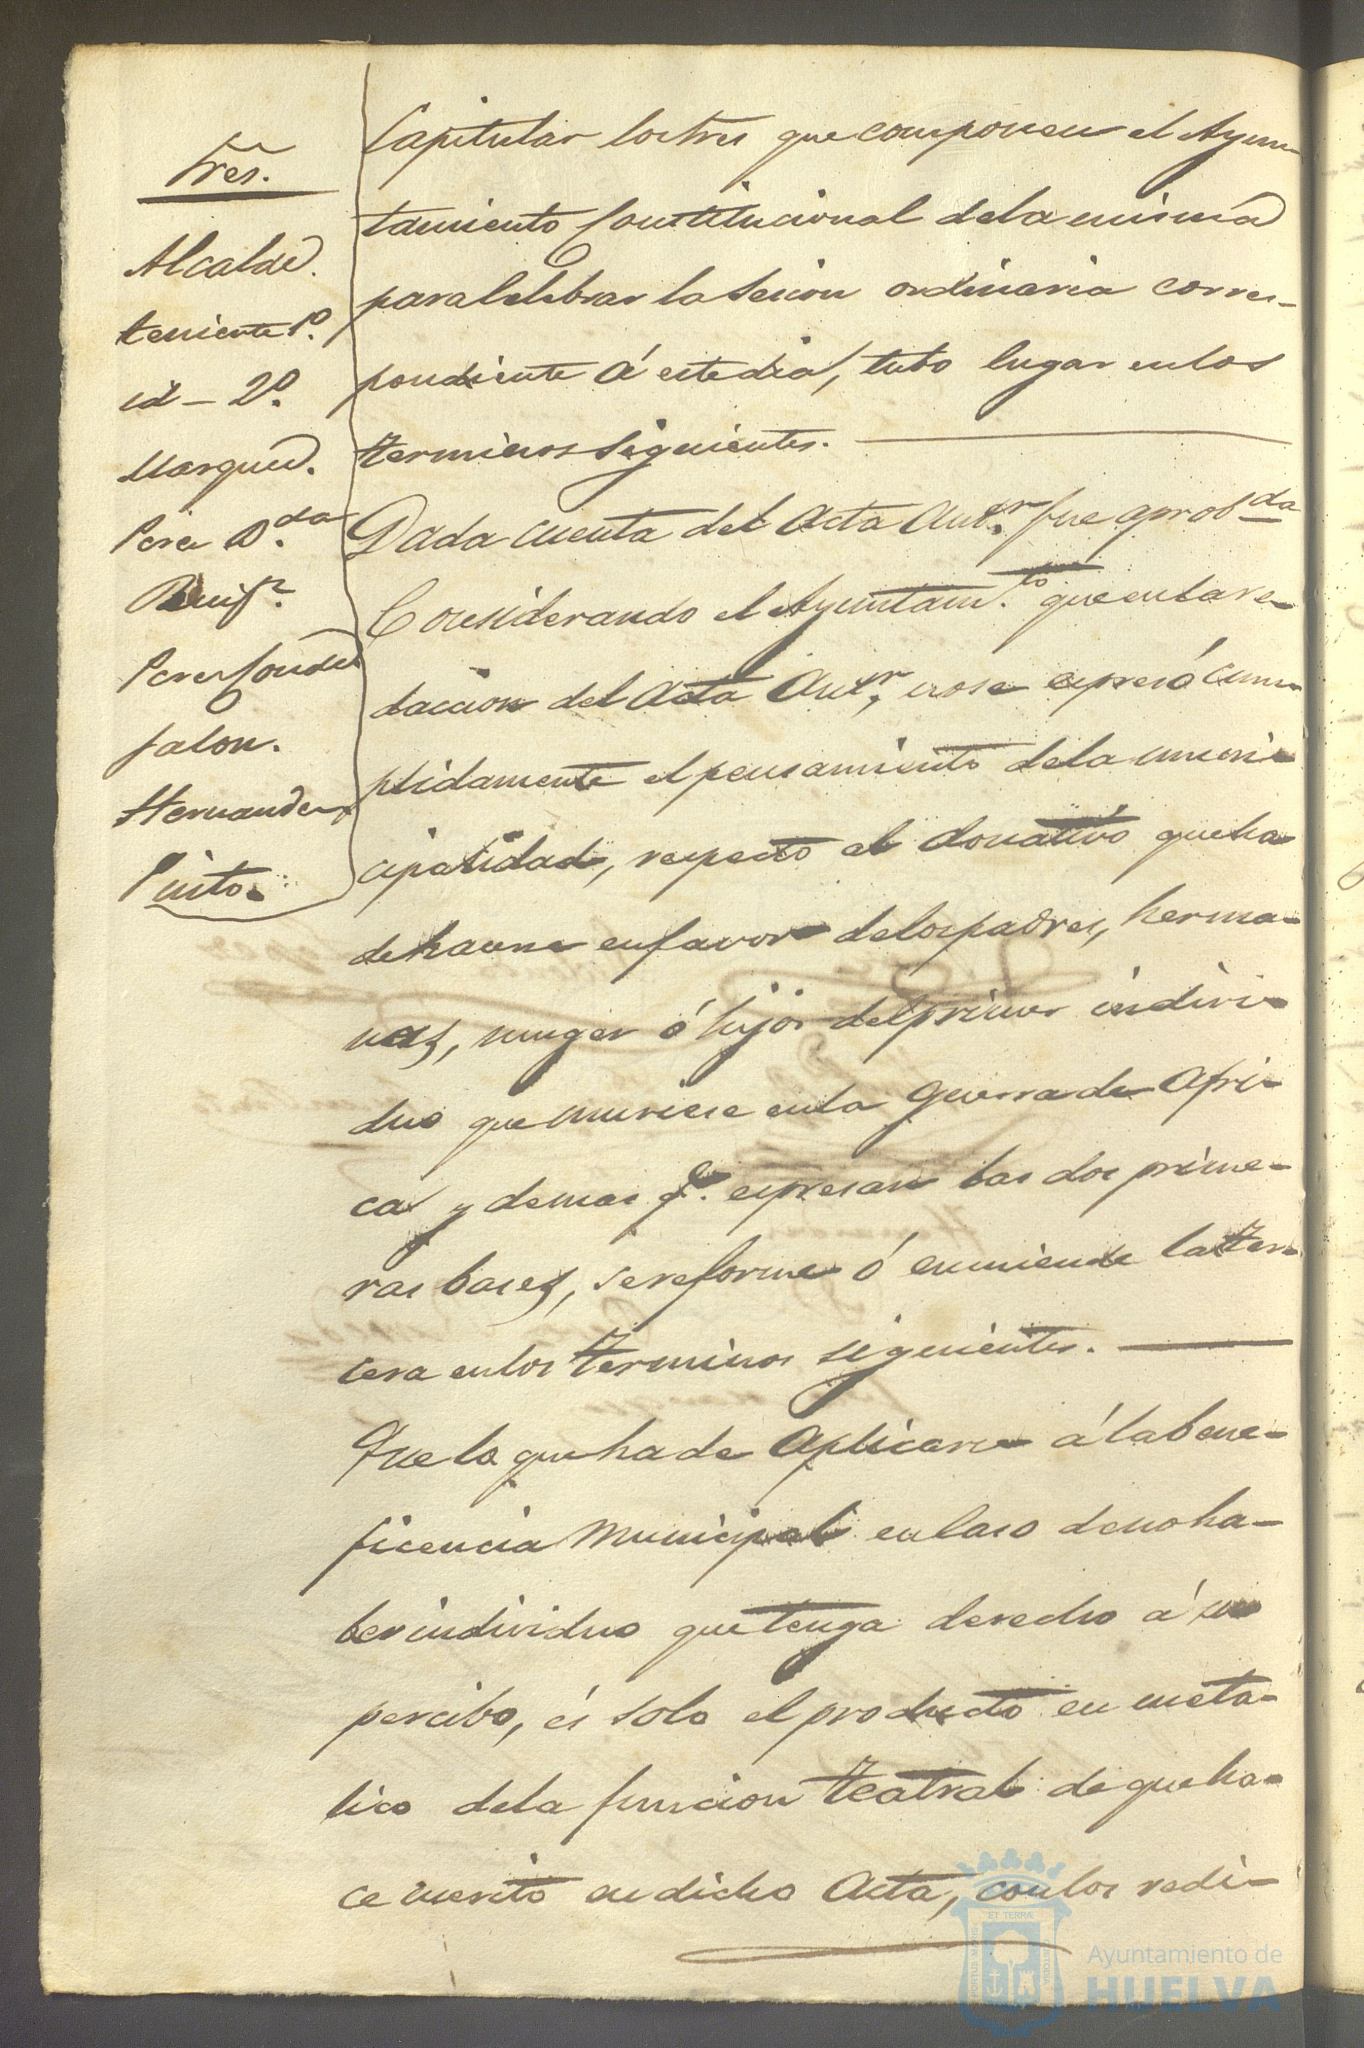 Sres.
Alcalde.
teniente 1º.
id - 2º.
Marques.
Perez D.da
Perez
Jalon.
Hernandez
Pinto.
Capitular los Sres que componen el Ayun-
tamiento Constitucional dela misma
para Celebrar la Sesion ordinaria corres-
pondiente á este dia, tubo lugar en los
terminos Siguientes.
Dada cuenta del Acta Antr. fue aprobda
Considerando el Ayuntam.to que en la re-
daccion del Acta Antr, no se espresó cum-
plidamente el pensamiento dela muni-
cipalidad, respecto el donativo que ha
de hacerse en favor delos padres, herma-
nas, muger ó hijos del primer indivi-
duo que muriese en la Guerra de Afri-
ca y demas q.e espresan las dos prime-
ras bases, se reforme ó enmiende la ter-
cera en los terminos siguientes.
Que lo que ha de aplicarse á la bene-
ficencia Municipal en caso de no ha-
ber individuo que tenga derecho á su
percibo, és solo el producto en meta-
lico dela funcion teatral de que ha-
ce merito en dicho Acta, con los redi-
PORTUS MARIS
ET TERRÆ
CUSTODIA
Ayuntamiento de
HUELVA